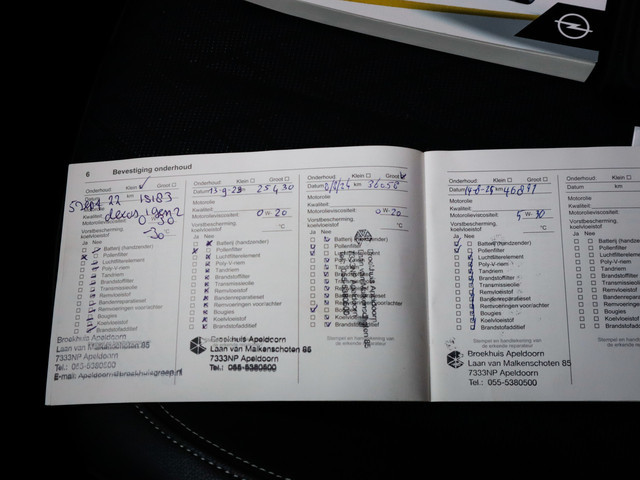 6 Bevestiging onderhoud
Onderhoud: Klein ☑ Groot ☐
Datum 22 km 18183
Kwaliteit:
Motorolieviscositeit: 0W-20
Vorstbescherming,
koelvloeistof -30 °C
Ja Nee
Batterij (handzender)
Pollenfilter
Luchtfilterelement
Poly-V-riem
Tandriem
Brandstoffilter
Transmissieolie
Remvloeistof
Bandenreparatieset
Remvoeringen voor/achter
Bougies
Koelvloeistof
Brandstofadditief
Broekhuis Apeldoorn
Laan van Malkenschoten 85
7333NP Apeldoorn
Tel.: 055-5380500
Onderhoud: Klein ☐ Groot ☐
Datum 13-9-23 km 25430
Motorolie
Kwaliteit:
Motorolieviscositeit: 0W-20
Vorstbescherming,
koelvloeistof °C
Ja Nee
Batterij (handzender)
Pollenfilter
Luchtfilterelement
Poly-V-riem
Tandriem
Brandstoffilter
Transmissieolie
Remvloeistof
Bandenreparatieset
Remvoeringen voor/achter
Bougies
Koelvloeistof
Brandstofadditief
Broekhuis Apeldoorn
Laan van Malkenschoten 85
7333NP Apeldoorn
Tel.: 055-5380500
Onderhoud: Klein ☐ Groot ☑
Datum km 36056
Motorolie
Kwaliteit:
Motorolieviscositeit: 0W-20
Vorstbescherming,
koelvloeistof °C
Ja Nee
Batterij (handzender)
Pollenfilter
Brandstofadditief
Stempel en handtekening van
de erkende reparateur
Onderhoud: Klein ☐ Groot ☐
Datum km 46871
Motorolie
Kwaliteit:
Motorolieviscositeit: 5W-30
Vorstbescherming,
koelvloeistof °C
Ja Nee
Batterij (handzender)
Pollenfilter
Luchtfilterelement
Poly-V-riem
Tandriem
Brandstoffilter
Transmissieolie
Remvloeistof
Bandenreparatieset
Remvoeringen voor/achter
Bougies
Koelvloeistof
Brandstofadditief
Stempel en handtekening van
de erkende reparateur
Broekhuis Apeldoorn
Laan van Malkenschoten 85
7333NP Apeldoorn
Tel.: 055-5380500
Onderhoud: Klein ☐
Datum km
Motorolie
Kwaliteit:
Motorolieviscositeit:
Vorstbescherming,
koelvloeistof
Ja Nee
Batterij (handzender)
Pollenfilter
Luchtfilterelement
Poly-V-riem
Tandriem
Brandstoffilter
Transmissieolie
Remvloeistof
Bandenreparatieset
Bougies
Koelvloeistof
Brandstofadditief